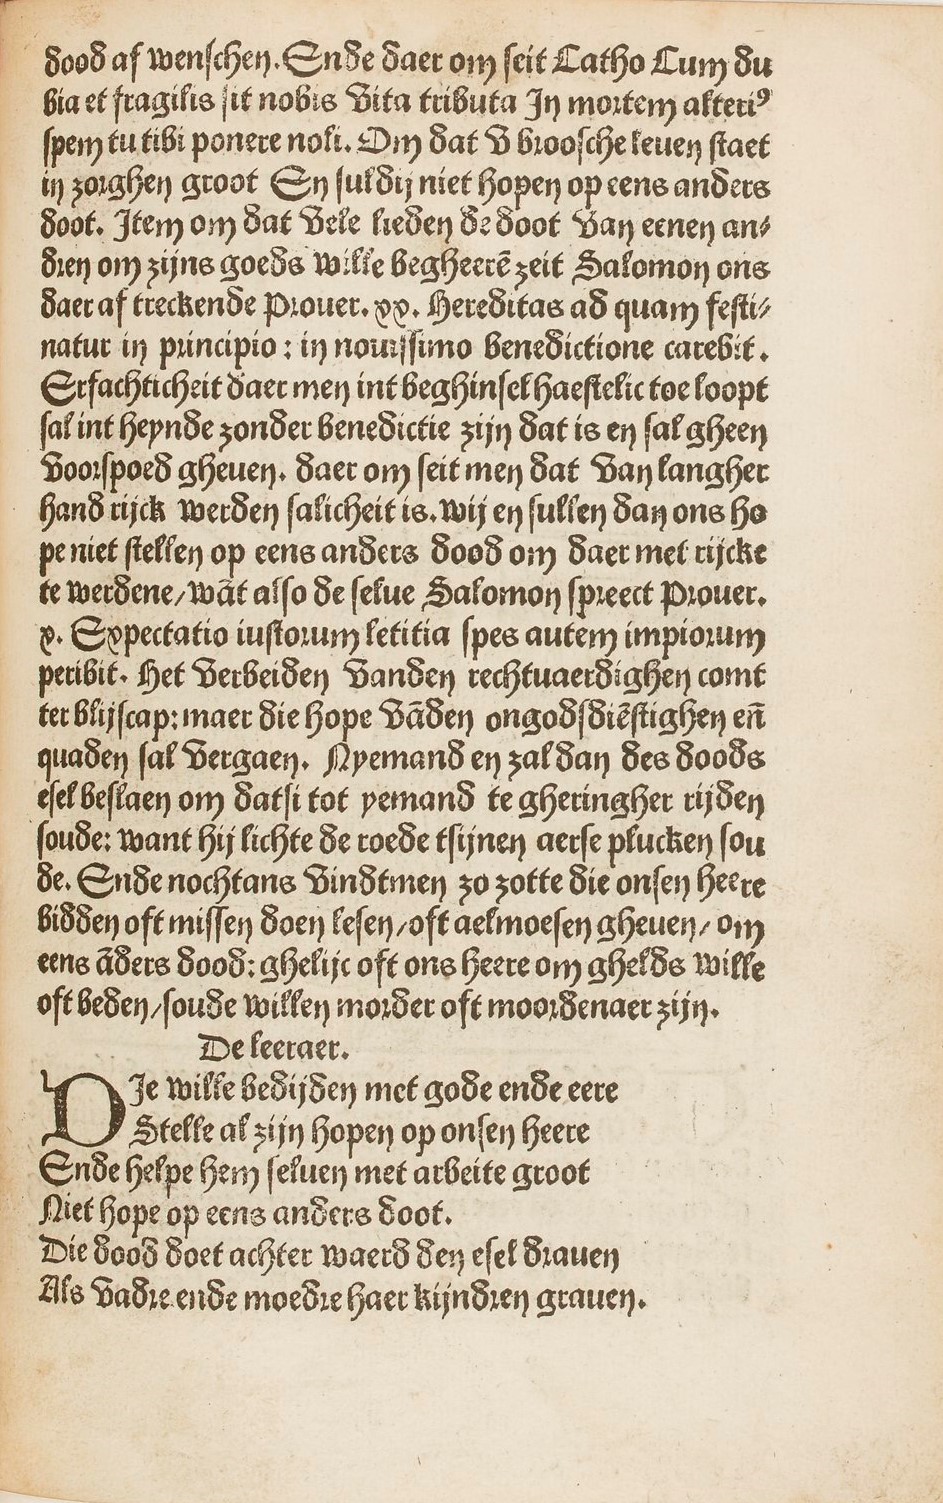 dood af wenschen. Ende daer om seit Catho Cum du
bia et fragilis sit nobis vita tributa In mortem alteriꝰ
spem tu tibi ponere noli. Om dat v broosche leuen staet
in zorghen groot En suldij niet hopen op eens anders
doot. Item om dat vele lieden de doot van eenen an⸗
dren om zijns goeds wille begheerē zeit Salomon ons
daer af treckende Prouer. xx. Hereditas ad quam festi⸗
natur in principio: in nouissimo benedictione carebit.
Erfachticheit daer men int beghinsel haestelic toe loopt
sal int heynde zonder benedictie zijn dat is en sal gheen
voorspoed gheuen. daer om seit men dat van langher
hand rijck werden salicheit is. wij en sullen dan ons ho
pe niet stellen op eens anders dood om daer met rijcke
te werdene/wāt also de selue Salomon spreect Prouer.
x. Expectatio iustorum letitia spes autem impiorum
peribit. Het verbeiden vanden rechtuaerdighen comt
ter blijscap: maer die hope vāden ongodsdiēstighen eñ
quaden sal vergaen. Nyemand en zal dan des doods
esel beslaen om datsi tot yemand te gheringher rijden
soude: want hij lichte de roede tsijnen aerse plucken sou
de. Ende nochtans vindtmen zo zotte die onsen heere
bidden oft missen doen lesen/oft aelmoesen gheuen/ om
eens āders dood: ghelijc oft ons heere om ghelds wille
oft beden/soude willen morder oft moordenaer zijn.
De leeraer.
DIe wille bedijden met gode ende eere
Stelle al zijn hopen op onsen heere
Ende helpe hem seluen met arbeite groot
Niet hope op eens anders doot.
Die dood doet achter waerd den esel drauen
Als vadre ende moedre haer kijndren grauen.